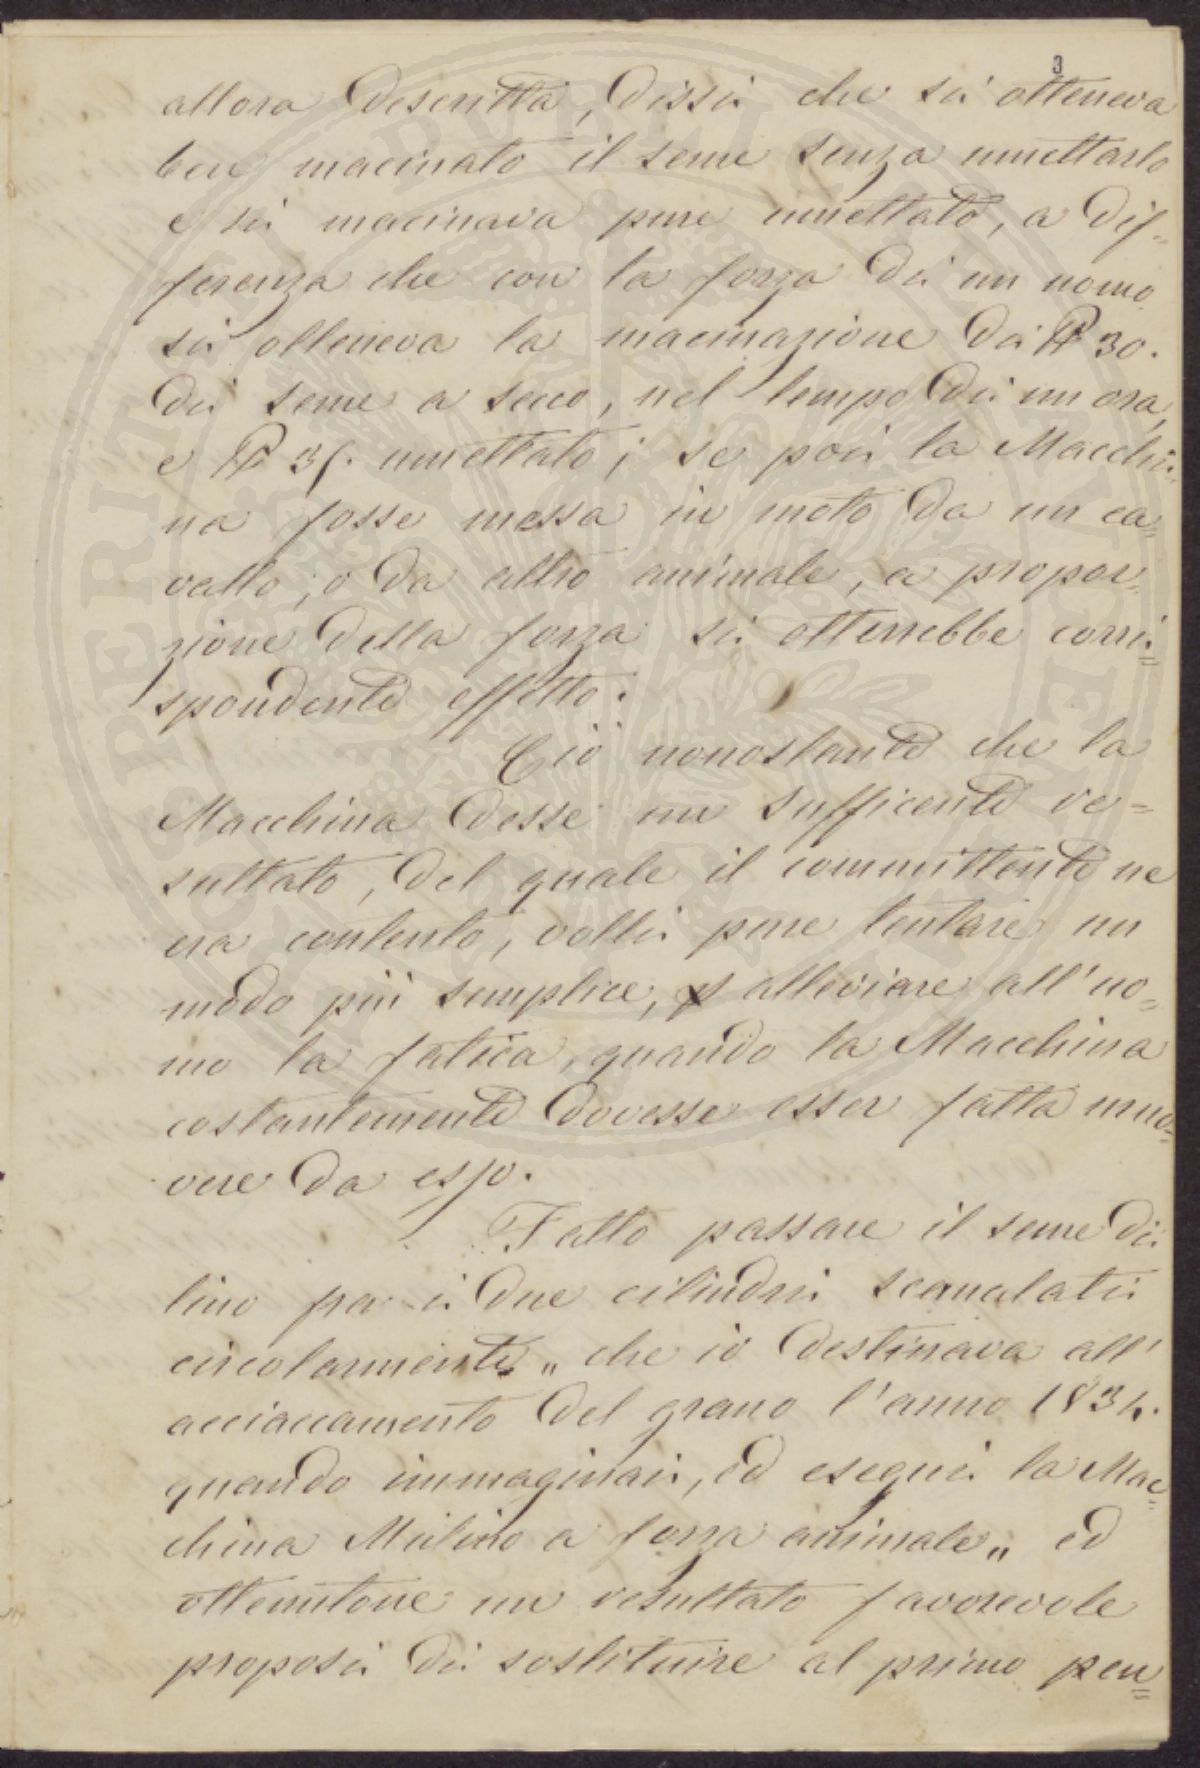 3
allora descritta, dissi che si otteneva
ben macinato il seme senza umettarlo
e si macinava pure umettato, a dif=
ferenza che con la forza di un uomo
si otteneva la macinazione di ℔ 30.
di seme a secco, nel tempo di un ora,
e ℔ 35. umettato; se poi la Macchi=
na fosse messa in moto da un ca=
vallo, o da altro animale, a propor=
zione della forza si otterrebbe corri=
spondente effetto.
Ciò nonostante che la
Macchina desse un sufficente re=
sultato, del quale il committente ne
era contento, volli pure tentare un
modo più semplice, p alleviare all'uo=
mo la fatica, quando la Macchina
costantemente dovesse esser fatta muo=
vere da esso.
Fatto passare il seme di
lino fra i due cilindri scanalati
circolarmente „ che io destinava all'
acciaccamento del grano l'anno 1834.
quando immaginai, ed eseguii la Mac=
china Mulino a forza animale „ ed
ottenutone un resultato favorevole
proposi di sostituire al primo pen=